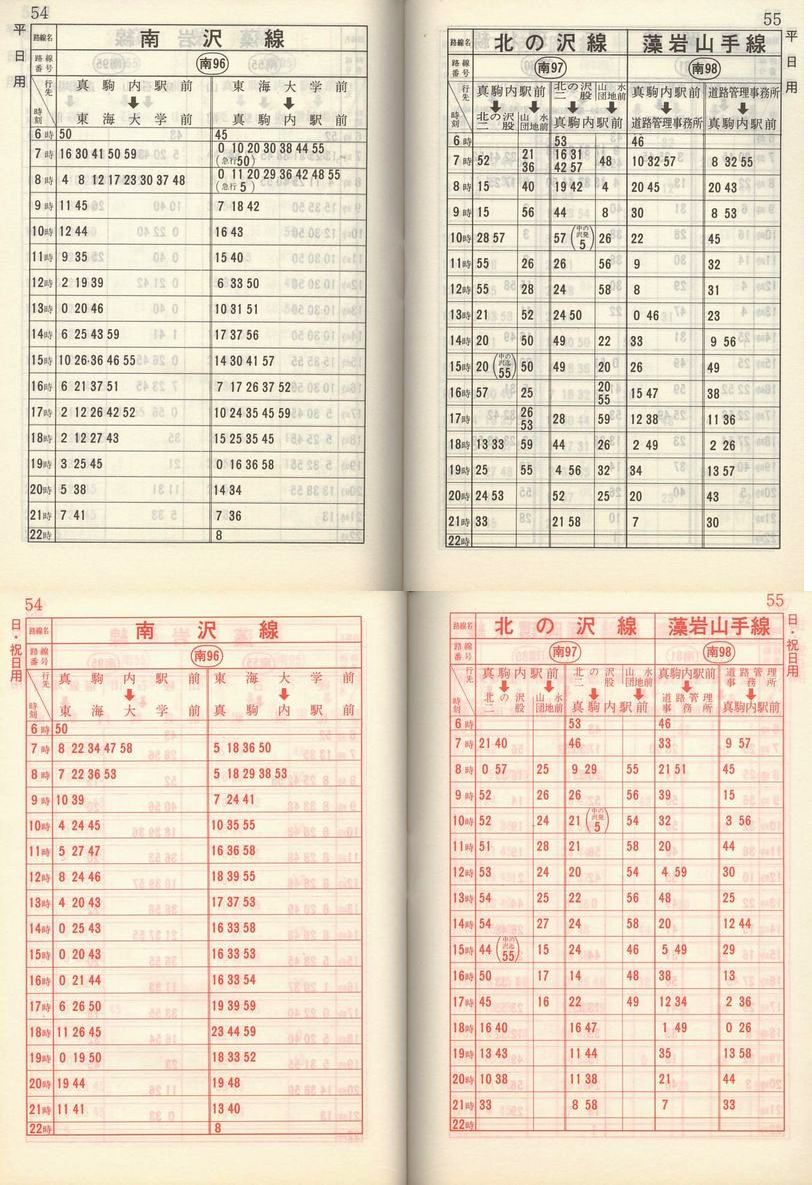 54
平日用
路線名 南沢線
路線番号 南96
行先 時刻 真駒内駅前 東海大学前 東海大学前 真駒内駅前
6時 50 45
7時 16 30 41 50 59 0 10 20 30 38 44 55 (急行50)
8時 4 8 12 17 23 30 37 48 0 11 20 29 36 42 48 55 (急行5)
9時 11 45 7 18 42
10時 12 44 16 43
11時 9 35 15 40
12時 2 19 39 6 33 50
13時 0 20 46 10 31 51
14時 6 25 43 59 17 37 56
15時 10 26 36 46 55 14 30 41 57
16時 6 21 37 51 7 17 26 37 52
17時 2 12 26 42 52 10 24 35 45 59
18時 2 12 27 43 15 25 35 45
19時 3 25 45 0 16 36 58
20時 5 38 14 34
21時 7 41 7 36
22時 8
55
平日用
路線名 北の沢線 藻岩山手線
路線番号 南97 南98
行先 時刻 真駒内駅前 北の沢二股 山水団地前 北の沢二股 山水団地前 真駒内駅前 真駒内駅前 道路管理事務所 道路管理事務所 真駒内駅前
6時 53 46
7時 52 21 36 16 31 42 57 48 10 32 57 8 32 55
8時 15 40 19 42 4 20 45 20 43
9時 15 56 44 8 30 8 53
10時 28 57 57 (中の沢発5) 26 22 45
11時 55 26 26 56 9 32
12時 55 28 24 58 8 31
13時 21 52 24 50 0 46 23
14時 20 50 49 22 33 9 56
15時 20 (中の沢迄55) 50 49 20 26 49
16時 57 25 20 55 15 47 38
17時 26 53 28 59 12 38 11 36
18時 13 33 59 44 26 2 49 2 26
19時 25 55 4 56 32 34 13 57
20時 24 53 52 25 20 43
21時 33 21 58 7 30
22時
54
日・祝日用
路線名 南沢線
路線番号 南96
行先 時刻 真駒内駅前 東海大学前 東海大学前 真駒内駅前
6時 50
7時 8 22 34 47 58 5 18 36 50
8時 7 22 36 53 5 18 29 38 53
9時 10 39 7 24 41
10時 4 24 45 10 35 55
11時 5 27 47 16 36 58
12時 8 24 46 18 39 55
13時 4 20 43 17 37 53
14時 0 25 43 16 33 58
15時 0 20 43 16 33 53
16時 0 21 44 16 33 54
17時 6 26 50 19 39 59
18時 11 26 45 23 44 59
19時 0 19 50 18 33 52
20時 19 44 19 48
21時 11 41 13 40
22時 8
55
日・祝日用
路線名 北の沢線 藻岩山手線
路線番号 南97 南98
行先 時刻 真駒内駅前 北の沢二股 山水団地前 北の沢二股 山水団地前 真駒内駅前 真駒内駅前 道路管理事務所 道路管理事務所 真駒内駅前
6時 53 46
7時 21 40 46 33 9 57
8時 0 57 25 9 29 55 21 51 45
9時 52 26 26 56 39 15
10時 52 24 21 (中の沢発5) 54 32 3 56
11時 51 28 21 58 20 44
12時 53 24 20 54 4 59 30
13時 54 25 22 56 48 25
14時 54 27 24 58 20 12 44
15時 44 (中の沢迄55) 15 24 46 5 49 29
16時 50 17 14 48 38 13
17時 45 16 22 49 12 34 2 36
18時 16 40 16 47 1 49 0 26
19時 13 43 11 44 35 13 58
20時 10 38 11 38 21 44
21時 33 8 58 7 33
22時